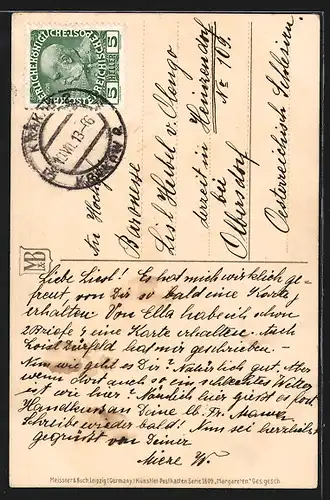 KAISERLICHE KÖNIGLICHE ÖSTERREICHISCHE POST
5 HELLER 5
KRAKÓW 2
KRAKAU
VII 13
An Hoch
Baronesse
Lisl Heibel v. Olengo
derzeit in Hennersdorf
No 119.
bei
Olbersdorf
Oesterreichisch Schlesien.
MB
Liebe Liesl! Es hat mich wirklich ge-
freut, von Dir so bald eine Karte
erhalten. Von Ella habe ich schon
2 Briefe & eine Karte erhalten. Auch
Loisl hat mir geschrieben. -
Nun wie geht es Dir? Natürlich gut. Aber
wenn dort auch so ein schlechtes Wetter
ist wie hier? Nämlich hier gießt es fort
Handkuss an Deine lb. Fr. Mama.
Schreibe wieder bald! Nun sei herzlichst
gegrüßt von Deiner
Mieze W.
Meissner & Buch, Leipzig (Germany) Künstler-Postkarten Serie 1809. „Margareten" Ges. gesch.